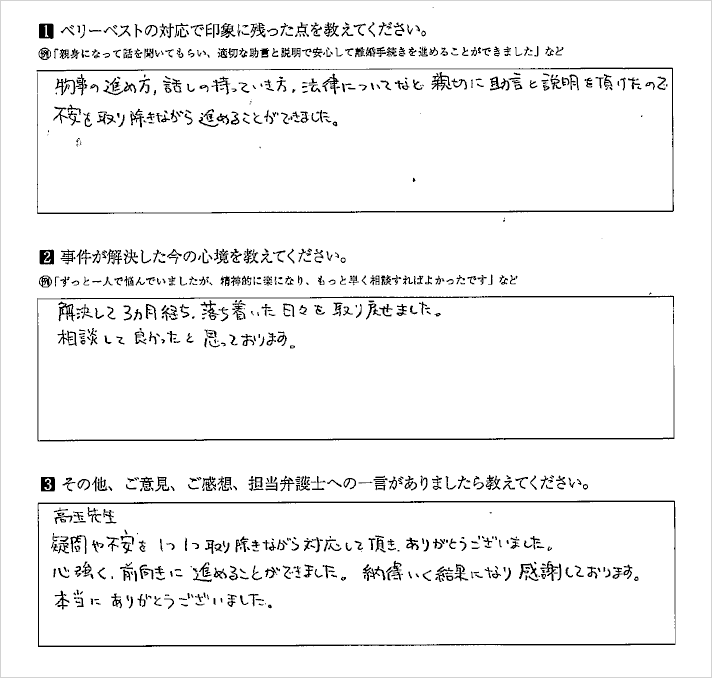 1 ベリーベストの対応で印象に残った点を教えてください。
例「親身になって話を聞いてもらい、適切な助言と説明で安心して離婚手続きを進めることができました」など
物事の進め方,話しの持っていき方,法律についてなど 親切に助言と説明を頂けたので
不安を取り除きながら進めることができました。
2 事件が解決した今の心境を教えてください。
例「ずっと一人で悩んでいましたが、精神的に楽になり、もっと早く相談すればよかったです」など
解決して3ヵ月経ち,落ち着いた日々を取り戻せました。
相談して良かったと思っております。
3 その他、ご意見、ご感想、担当弁護士への一言がありましたら教えてください。
高玉先生
疑問や不安を1つ1つ取り除きながら対応して頂き,ありがとうございました。
心強く,前向きに進めることができました。納得いく結果になり感謝しております。
本当にありがとうございました。